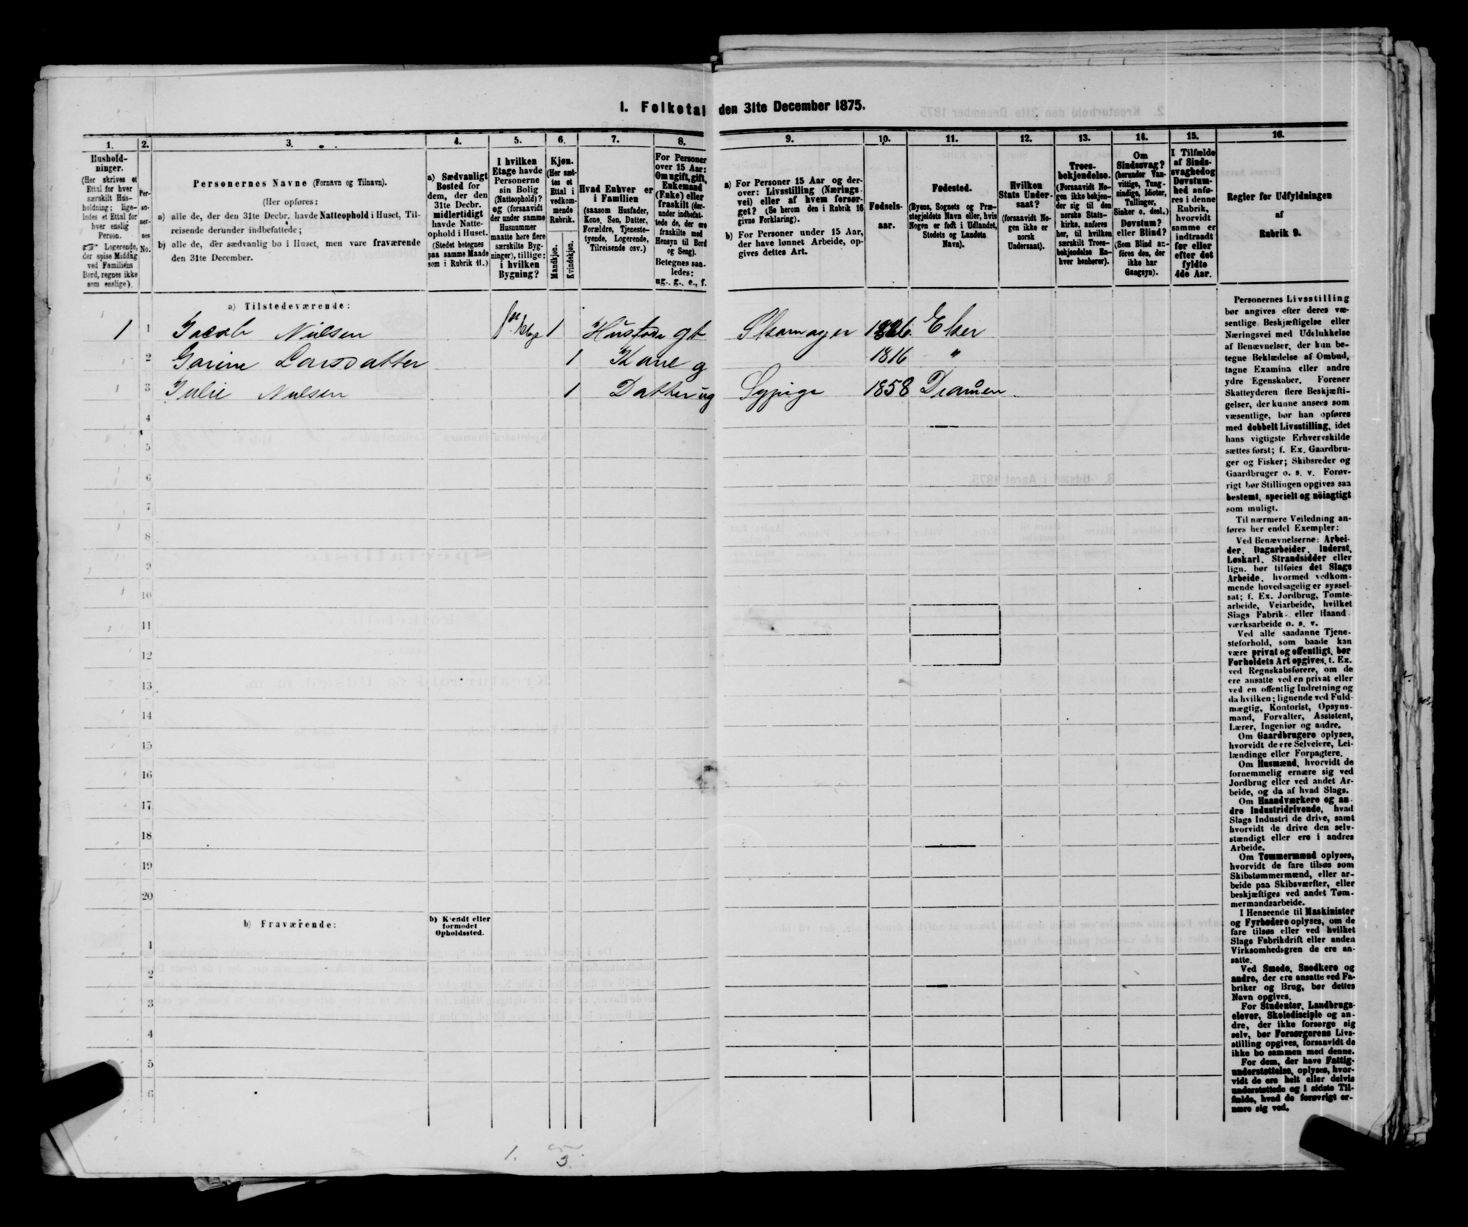 1. Folketal den 31te December 1875.
1. 2. 3. 4. 5. 6. 7. 8. 9. 10. 11. 12. 13. 14. 15. 16.
Hushold-
ninger.
(Her skrives et
Ettal for hver
særskilt Hus-
holdning; lige-
ledes et Ettal for
hver enslig
Person.
Logerende,
der spise Middag
ved Familiens
Bord, regnes ikke
som enslige).
Per-
so-
ner-
nes
No.
Personernes Navne (Fornavn og Tilnavn).
(Her opføres:
a) alle de, der den 31te Decbr. havde Natteophold i Huset, Til-
reisende derunder indbefattede;
b) alle de, der sædvanlig bo i Huset, men vare fraværende
den 31te December.
a) Sædvanligt
Bosted for
dem, der den
31te Decbr.
midlertidigt
havde Natte-
ophold i Huset.
(Stedet betegnes
paa samme Maade
som i Rubrik 11.)
I hvilken
Etage havde
Personerne
sin Bolig
(Natteophold)?
og (forsaavidt
der under samme
Husnummer
maatte høre flere
særskilte Byg-
ninger), tillige:
i hvilken
Bygning?
Kjøn.
(Her sæt-
tes et
Ettal i
vedkom-
mende
Rubrik.
Mandkjøn.
Kvindekjøn.
Hvad Enhver er
i Familien
(saasom Husfader,
Kone, Søn, Datter,
Forældre, Tjeneste-
tyende, Logerende,
Tilreisende osv.)
For Personer
over 15 Aar:
Om ugift, gift,
Enkemand
(Enke) eller
fraskilt (der-
under indbefat-
tede de, der ere
fraskilte med
Hensyn til Bord
og Seng).
Betegnes saa-
ledes:
ug., g., e., f.
a) For Personer 15 Aar og der-
over: Livsstilling (Nærings-
vei) eller af hvem forsør-
get? (Se herom den i Rubrik 16
givne Forklaring).
b) For Personer under 15 Aar,
der have lønnet Arbeide, op-
gives dettes Art.
Fødsels-
aar.
Fødested.
(Byens, Sognets og Præ-
stegjeldets Navn eller, hvis
Nogen er født i Udlandet,
Stedets og Landets
Navn).
Hvilken
Stats Under-
saat?
(forsaavidt No-
gen ikke er
norsk
Undersaat).
Troes-
bekjendelse.
(Forsaavidt No-
gen ikke bekjen-
der sig til den
norske Stats-
kirke, anføres
her, til hvilken
særskilt Troes-
bekjendelse En-
hver henhører).
Om
Sindssvag?
(herunder Van-
vittige, Tung-
sindige, Idioter,
Tullinger,
Sinker o. desl.)
Døvstum?
eller Blind?
(Som Blind an-
føres den, der
ikke har
Gangsyn).
I Tilfælde
af Sinds-
svaghed og
Døvstum-
hed anfø-
res i denne
Rubrik,
hvorvidt
samme er
indtraadt
før eller
efter det
fyldte
4de Aar.
Regler for Udfyldningen
af
Rubrik 9.
a) Tilstedeværende:
1 1 Jacob Nielsen 1 Husfader gt Skomager 1826 Eker
2 Karine Larsdatter 1 Kone g 1816 "
3 Julie Nielsen 1 Datter ug Sypige 1858 Dramen
4
5
6
7
8
9
10
11
12
13
14
15
16
17
18
19
20
b) Fraværende:
b) Kjendt eller
formodet
Opholdssted.
1
2
3
4
5
6
1. 3.
Personernes Livsstilling
bør angives efter deres væ-
sentlige Beskjæftigelse eller
Næringsvei med Udelukkelse
af Benævnelser, der kun be-
tegne Beklædelse af Ombud,
tagne Examina eller andre
ydre Egenskaber. Forener
Skatteyderen flere Beskjæfti-
gelser, der kunne ansees som
væsentlige, bør han opføres
med dobbelt Livsstilling, idet
hans vigtigste Erhvervskilde
sættes først; f. Ex. Gaardbru-
ger og Fisker; Skibsreder og
Gaardbruger o. s. v. Forøv-
rigt bør Stillingen opgives saa
bestemt, specielt og nøiagtigt
som muligt.
Til nærmere Veiledning an-
føres her endel Exempler:
Ved Benævnelserne: Arbei-
der, Dagarbeider, Inderst,
Løskarl, Strandsidder eller
lign. bør tilføies det Slags
Arbeide, hvormed vedkom-
mende hovedsagelig er syssel-
sat; f. Ex. Jordbrug, Tomte-
arbeide, Veiarbeide, hvilket
Slags Fabrik- eller Haand-
værksarbeide o. s. v.
Ved alle saadanne Tjene-
steforhold, som baade kan
være privat og offentligt, bør
Forholdets Art opgives, t. Ex.
ved Regnskabsførere, om de
ere ansatte ved en privat eller
ved en offentlig Indretning og
da hvilken; lignende ved Fuld-
mægtig, Kontorist, Opsyns-
mand, Forvalter, Assistent,
Lærer, Ingeniør og andre.
Om Gaardbrugere oplyses,
hvorvidt de ere Selveiere, Lei-
lændinge eller Forpagtere.
Om Husmænd, hvorvidt de
fornemmelig ernære sig ved
Jordbrug eller ved andet Ar-
beide, og da af hvad Slags.
Om Haandværkere og an-
dre Industridrivende, hvad
Slags Industri de drive, samt
hvorvidt de drive den selv-
stændigt eller ere i andres
Arbeide.
Om Tømmermænd oplyses,
hvorvidt de fare tilsøs som
Skibstømmermænd, eller ar-
beide paa Skibsværfter, eller
beskjæftiges ved andet Tøm-
mermandsarbeide.
I Henseende til Maskinister
og Fyrbødere oplyses, om de
fare tilsøs eller ved hvilket
Slags Fabrikdrift eller anden
Virksomhedsgren de ere an-
satte.
Ved Smede, Snedkere og
andre, der ere ansatte ved Fa-
briker og Brug, bør dettes
Navn opgives.
For Studenter, Landbrugs-
elever, Skoledisciple og an-
dre, der ikke forsørge sig
selv, bør Forsørgerens Livs-
stilling opgives, forsaavidt de
ikke bo sammen med denne.
For dem, der have Fattig-
understøttelse, oplyses, hvor-
vidt de ere helt eller delvis
understøttede og i sidste Til-
fælde, hvad de forøvrigt er-
nære sig ved.